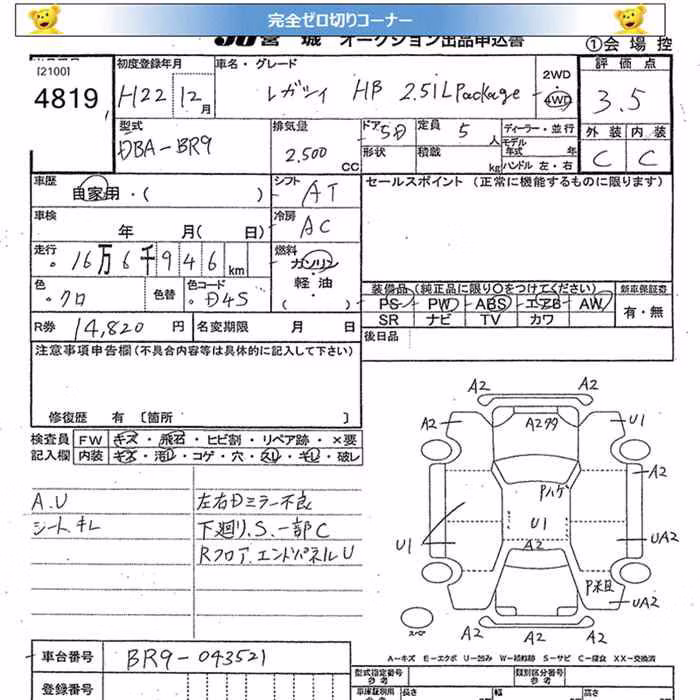 完全ゼロ切りコーナー
JU宮城 オークション出品申込書 ①会場控
[2100]
4819
初度登録年月 H22 12月
車名・グレード レガシィ HB 2.5i L Package
2WD
4WD
評価点
3.5
外装 内装
C C
型式
DBA-BR9
排気量
2,500 CC
ドア 5D
形状
定員 5 人
積載 kg
ディーラー・並行
モデル年式 年
ハンドル 左・右
車歴
自家用・( )
シフト AT
セールスポイント (正常に機能するものに限ります)
車検
年 月( 日)
冷房 AC
走行
16万6千946km
燃料
ガソリン・軽油
( )
色
クロ
色替
色コード
D4S
装備品(純正品に限り○をつけてください) 新車保証書
PS PW ABS エアB AW 有・無
SR ナビ TV カワ
R券 14,820円 名変期限 月 日
後日品
注意事項申告欄(不具合内容等は具体的に記入して下さい)
修復歴 有 [箇所 ]
検査員 FW キズ・飛石・ヒビ割・リペア跡・×要
記入欄 内装 キズ・汚レ・コゲ・穴・スレ・キレ・破レ
A.U
シート キレ
左右Dミラー不良
下廻り.S.一部C
Rフロア.エンドパネルU
A2 A2
A2 A2タタ U1
A2
Pハゲ
U1
U1 A2 UA2
UA2
スペア
A2 A2
A-キズ E-エクボ U-凹み W-補修跡 S-サビ C-腐食 XX-交換済
車台番号 BR9-043521
登録番号
型式指定番号 参考
類別区分番号 参考
長さ 幅 高さ